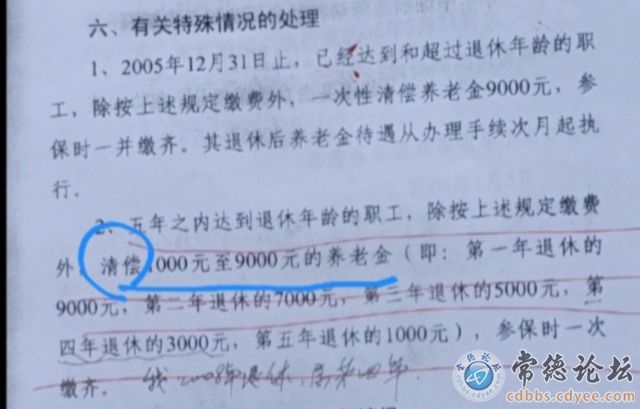 六、有关特殊情况的处理
1、2005年12月31日止，已经达到和超过退休年龄的职
工，除按上述规定缴费外，一次性清偿养老金9000元，参
保时一并缴齐。其退休后养老金待遇从办理手续次月起执
行。
2、五年之内达到退休年龄的职工，除按上述规定缴费
外，清偿1000元至9000元的养老金（即：第一年退休的
9000元，第二年退休的7000元，第三年退休的5000元，第
四年退休的3000元，第五年退休的1000元），参保时一次
缴齐。 我2008年退休，属第四年.
常德论坛
cdbbs.cdyee.com